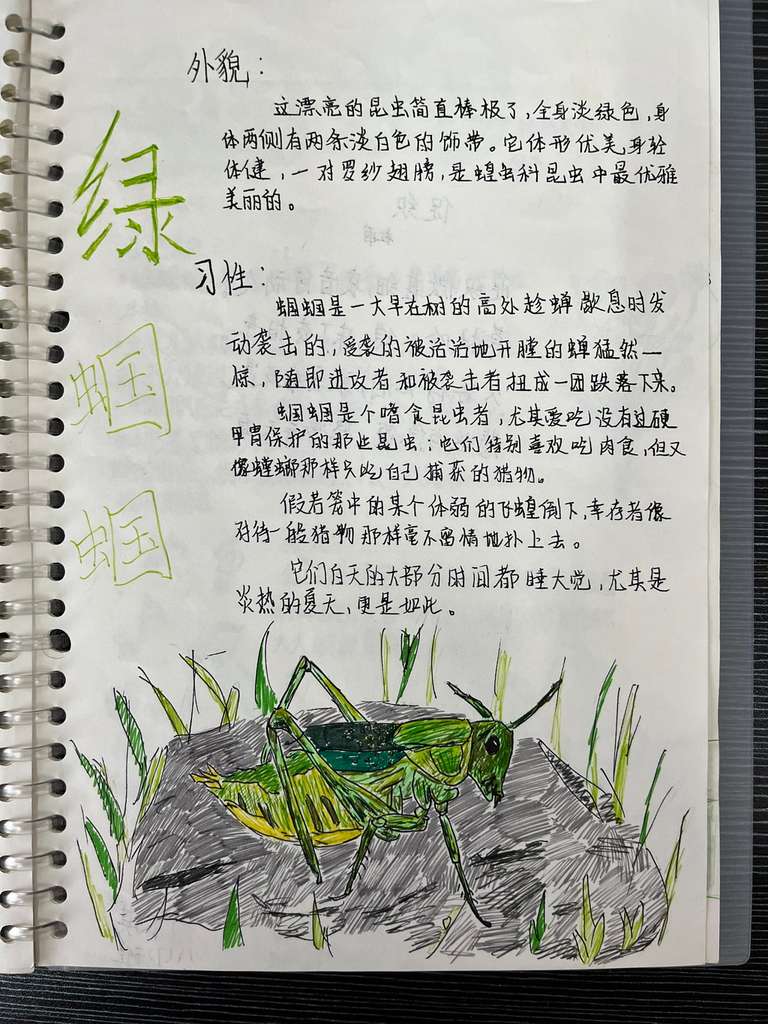 绿
蝈
蝈
外貌：
这漂亮的昆虫简直棒极了，全身淡绿色，身
体两侧有两条淡白色的饰带。它体形优美，身轻
体健，一对罗纱翅膀，是蝗虫科昆虫中最优雅
美丽的。
习性：
蝈蝈是一大早在树的高处趁蝉歇息时发
动袭击的，受袭的被活活地开膛的蝉猛然一
惊，随即进攻者和被袭击者扭成一团跌落下来。
蝈蝈是个嗜食昆虫者，尤其爱吃没有过硬
甲胄保护的那些昆虫；它们特别喜欢吃肉食，但又
像螳螂那样只吃自己捕获的猎物。
假若笼中的某个体弱的飞蝗倒下，幸存者像
对待一般猎物那样毫不留情地扑上去。
它们白天的大部分时间都睡大觉，尤其是
炎热的夏天，更是如此。